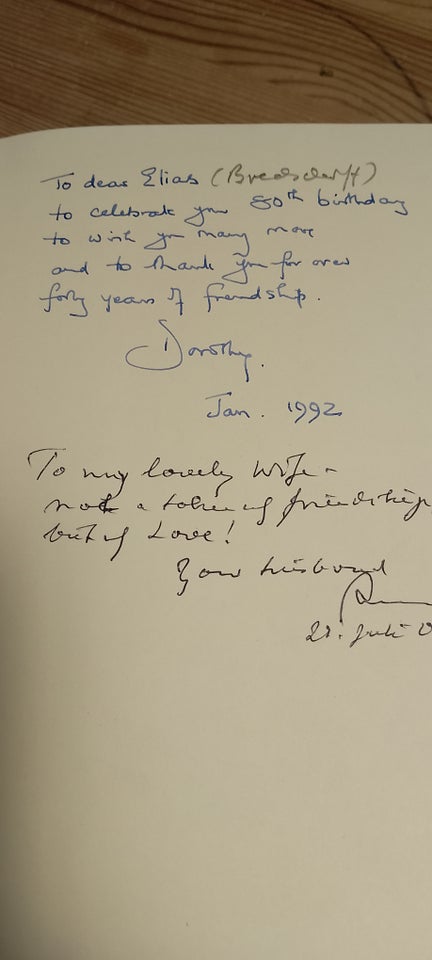 To dear Elias (Bredsdorff)
to celebrate your 80th birthday
to wish you many more
and to thank you for over
forty years of friendship.
Dorothy.
Jan. 1992
To my lovely Wife -
not a token of friendship
but of Love!
Your husband
21. Juli